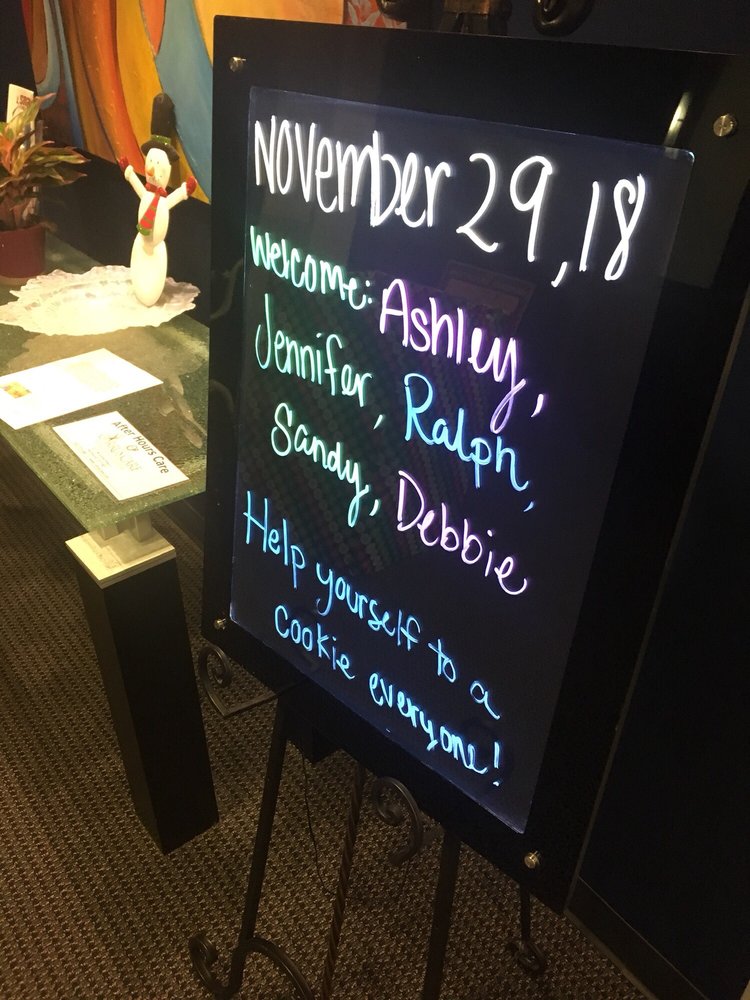 November 29, 18
Welcome: Ashley,
Jennifer, Ralph,
Sandy, Debbie
Help yourself to a
cookie everyone!
After Hours Care